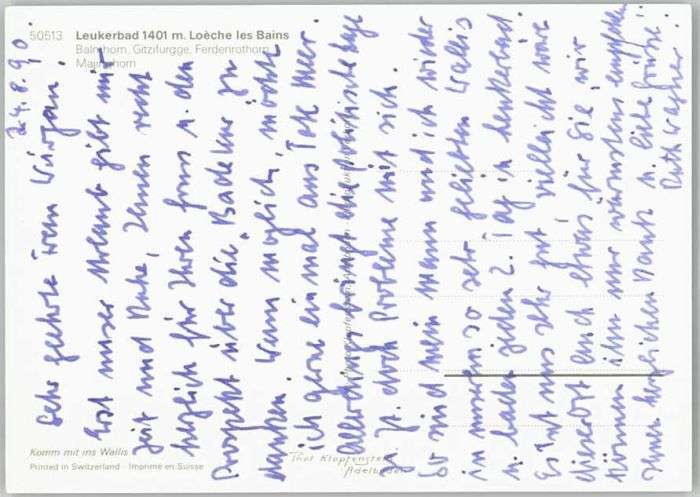 50513 Leukerbad 1401 m. Loèche les Bains
Balmhorn, Gitzifurgge, Ferdenrothorn
Majinghorn
24.8.90
Sehr geehrte Frau
Erst unser Urlaub gibt mir
Zeit und Ruhe, Ihnen recht
herzlich für Ihren Gruss u. den
Prospekt über die Badekur zu
danken. Wenn möglich, möchte
ich gerne einmal ans Tote Meer.
Allerdings bringt die politische Lage
z. Zt. doch Probleme mit sich.
So sind mein Mann und ich wieder
in unserem so sehr geliebten Wallis
u. baden jeden 2. Tag in Leukerbad.
Es tut uns sehr gut, vielleicht wäre
dieser Ort auch etwas für Sie, wir
können ihn nur wärmstens empfehlen.
Ihnen herzlichen Dank u. liebe Grüsse!
Ruth
Komm mit ins Wallis
Printed in Switzerland - Imprimé en Suisse
Thor Klopfenstein
Adelboden